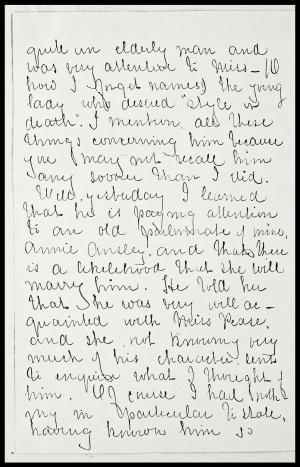 quite an elderly man and
was very attentive to Miss — (O
how I forget names) the young
lady who desired "style or
death". I mention all these
things concerning him because
you may not recall him
any sooner than I did.
Well, yesterday I learned
that he is paying attention
to an old schoolmate of mine,
Annie Ansley, and that there
is a likelihood that she will
marry him. He told her
that he was very well ac-
quainted with Miss Pease,
and she not knowing very
much of his character sent
to enquire what I thought of
him. Of course I had noth-
ing in particular to state,
having known him so